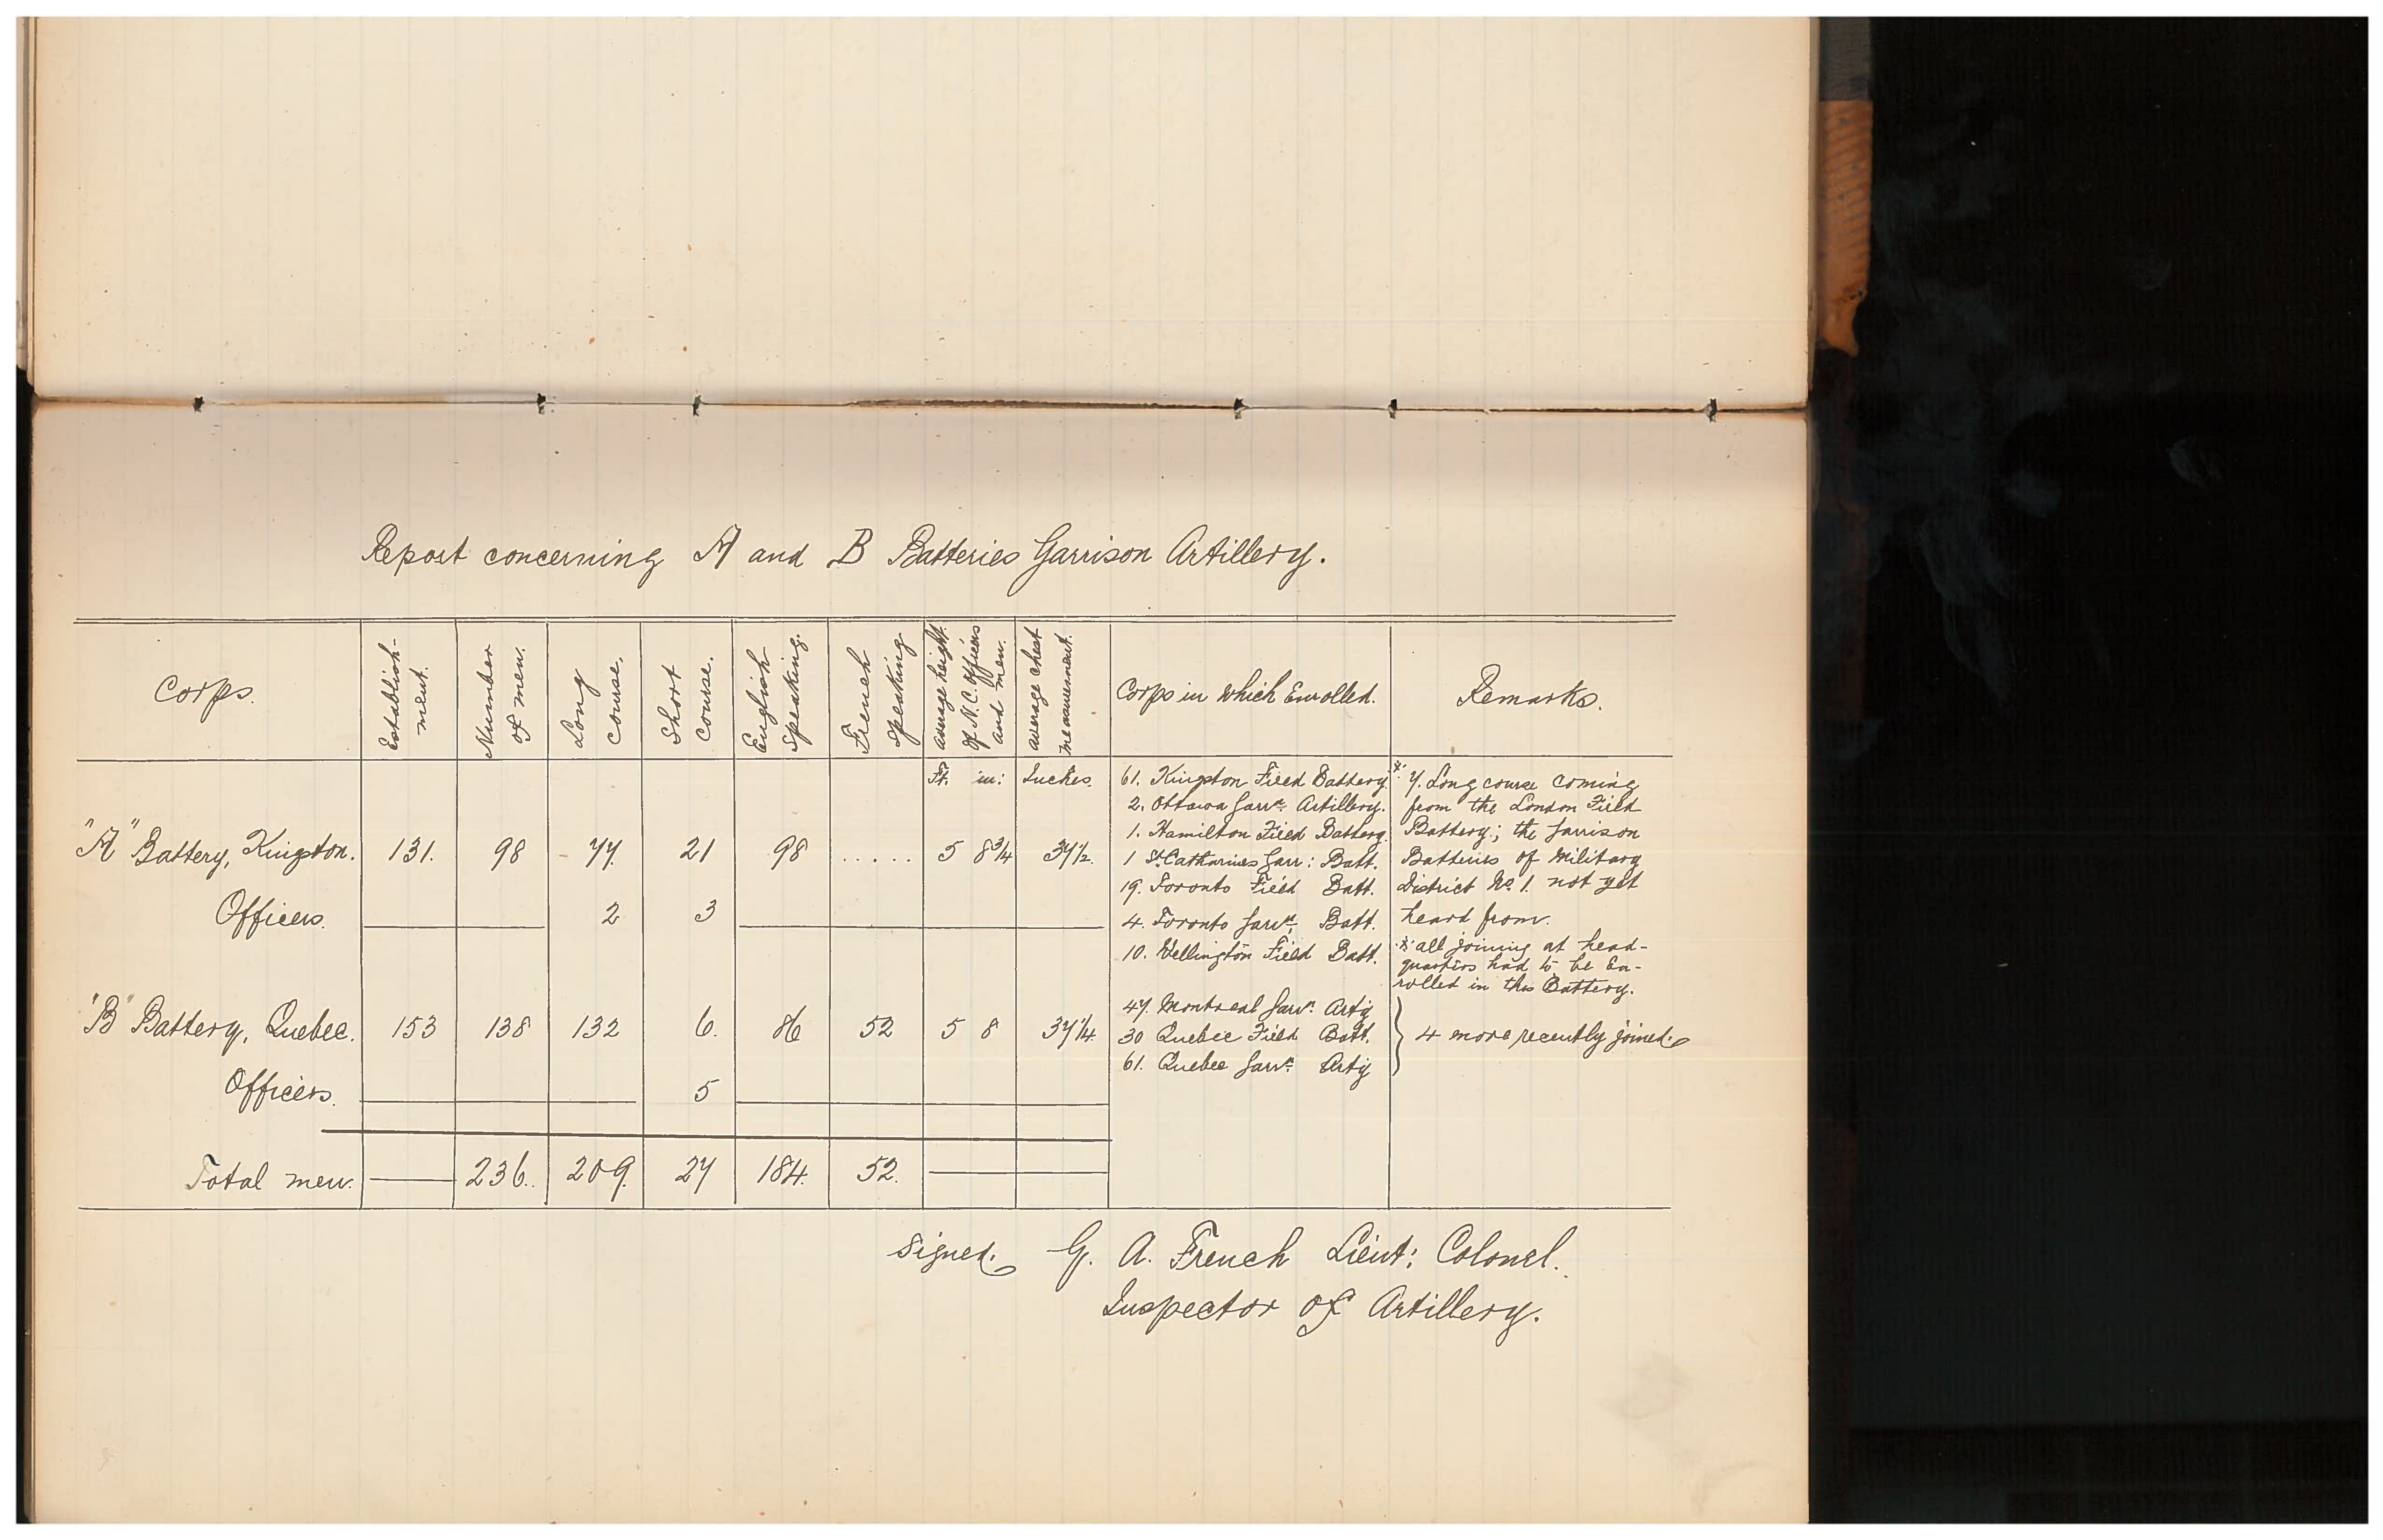 Report concerning A and B Batteries Garrison Artillery.
Corps.
Establish-
ment.
Number
of men.
Long
course.
Short
course.
English
speaking.
French
speaking
average height
of N.C. officers
and men.
average chest
measurement.
Corps in which Enrolled.
Remarks.
Ft. in: Inches.
"A" Battery, Kingston. 131. 98 77. 21 98 ..... 5 8 3/4 37 1/2.
Officers. 2 3
61. Kingston Field Battery.*
2. Ottawa Garrn. Artillery.
1. Hamilton Field Battery
1 St. Catharines Garr: Batt.
19. Toronto Field Batt.
4. Toronto Garrn. Batt.
10. Wellington Field Batt.
7. Long course coming
from the London Field
Battery; the Garrison
Batteries of Military
District No. 1. not yet
heard from.
* all joining at head-
quarters had to be En-
rolled in this Battery.
"B" Battery, Quebec. 153 138 132 6. 86 52 5 8 37 1/4
Officers. 5
47. Montreal Garrn. Arty
30 Quebec Field Batt.
61. Quebec Garrn. Arty
4 more recently joined.
Total men. 236. 209. 27 184. 52.
Signed. G. A. French Lieut: Colonel.
Inspector of Artillery.